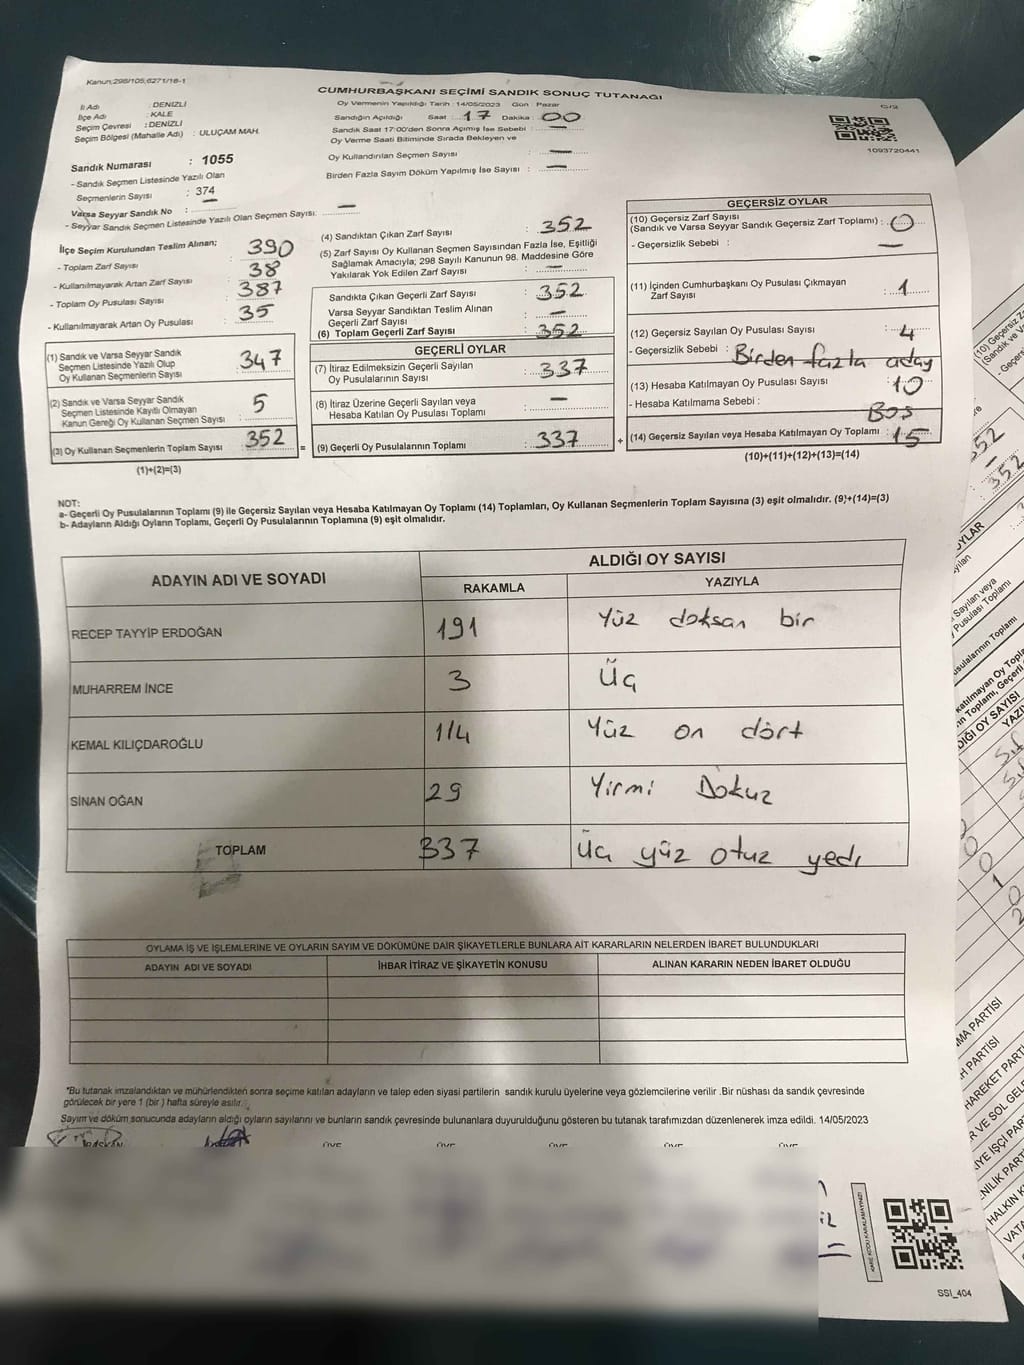 Kanun;298/105,6271/16-1
CUMHURBAŞKANI SEÇİMİ SANDIK SONUÇ TUTANAĞI
C/2
İli Adı : DENİZLİ
İlçe Adı : KALE
Seçim Çevresi : DENİZLİ
Seçim Bölgesi (Mahalle Adı) : ULUÇAM MAH.
Sandık Numarası : 1055
- Sandık Seçmen Listesinde Yazılı Olan
Seçmenlerin Sayısı : 374
Varsa Seyyar Sandık No : —
- Seyyar Sandık Seçmen Listesinde Yazılı Olan Seçmen Sayısı: —
Oy Vermenin Yapıldığı Tarih : 14/05/2023 Gün : Pazar
Sandığın Açıldığı Saat : 17 Dakika : 00
Sandık Saat 17:00'den Sonra Açımış İse Sebebi : —
Oy Verme Saati Bitiminde Sırada Bekleyen ve
Oy Kullandırılan Seçmen Sayısı : —
Birden Fazla Sayım Döküm Yapılmış İse Sayısı : —
1093720441
İlçe Seçim Kurulundan Teslim Alınan;
- Toplam Zarf Sayısı : 390
- Kullanılmayarak Artan Zarf Sayısı : 38
- Toplam Oy Pusulası Sayısı : 387
- Kullanılmayarak Artan Oy Pusulası : 35
(1) Sandık ve Varsa Seyyar Sandık
Seçmen Listesinde Yazılı Olup
Oy Kullanan Seçmenlerin Sayısı : 347
(2) Sandık ve Varsa Seyyar Sandık
Seçmen Listesinde Kayıtlı Olmayan
Kanun Gereği Oy Kullanan Seçmen Sayısı : 5
(3) Oy Kullanan Seçmenlerin Toplam Sayısı : 352
(1)+(2)=(3)
(4) Sandıktan Çıkan Zarf Sayısı : 352
(5) Zarf Sayısı Oy Kullanan Seçmen Sayısından Fazla İse, Eşitliği
Sağlamak Amacıyla; 298 Sayılı Kanunun 98. Maddesine Göre
Yakılarak Yok Edilen Zarf Sayısı : —
Sandıkta Çıkan Geçerli Zarf Sayısı : 352
Varsa Seyyar Sandıktan Teslim Alınan
Geçerli Zarf Sayısı : —
(6) Toplam Geçerli Zarf Sayısı : 352
GEÇERLİ OYLAR
(7) İtiraz Edilmeksizin Geçerli Sayılan
Oy Pusulalarının Sayısı : 337
(8) İtiraz Üzerine Geçerli Sayılan veya
Hesaba Katılan Oy Pusulaları Toplamı : —
= (9) Geçerli Oy Pusulalarının Toplamı : 337
GEÇERSİZ OYLAR
(10) Geçersiz Zarf Sayısı
(Sandık ve Varsa Seyyar Sandık Geçersiz Zarf Toplamı) : 0
- Geçersizlik Sebebi : —
(11) İçinden Cumhurbaşkanı Oy Pusulası Çıkmayan
Zarf Sayısı : 1
(12) Geçersiz Sayılan Oy Pusulası Sayısı : 4
- Geçersizlik Sebebi : Birden fazla aday
(13) Hesaba Katılmayan Oy Pusulası Sayısı : 10
- Hesaba Katılmama Sebebi : Boş
+ (14) Geçersiz Sayılan veya Hesaba Katılmayan Oy Toplamı : 15
(10)+(11)+(12)+(13)=(14)
NOT:
a- Geçerli Oy Pusulalarının Toplamı (9) ile Geçersiz Sayılan veya Hesaba Katılmayan Oy Toplamı (14) Toplamları, Oy Kullanan Seçmenlerin Toplam Sayısına (3) eşit olmalıdır. (9)+(14)=(3)
b- Adayların Aldığı Oyların Toplamı, Geçerli Oy Pusulalarının Toplamına (9) eşit olmalıdır.
ADAYIN ADI VE SOYADI ALDIĞI OY SAYISI
RAKAMLA YAZIYLA
RECEP TAYYİP ERDOĞAN 191 Yüz doksan bir
MUHARREM İNCE 3 Üç
KEMAL KILIÇDAROĞLU 114 Yüz on dört
SİNAN OĞAN 29 Yirmi Dokuz
TOPLAM 337 Üç yüz otuz yedi
OYLAMA İŞ VE İŞLEMLERİNE VE OYLARIN SAYIM VE DÖKÜMÜNE DAİR ŞİKAYETLERLE BUNLARA AİT KARARLARIN NELERDEN İBARET BULUNDUKLARI
ADAYIN ADI VE SOYADI İHBAR İTİRAZ VE ŞİKAYETİN KONUSU ALINAN KARARIN NEDEN İBARET OLDUĞU
*Bu tutanak imzalandıktan ve mühürlendikten sonra seçime katılan adayların ve talep eden siyasi partilerin sandık kurulu üyelerine veya gözlemcilerine verilir .Bir nüshası da sandık çevresinde
görülecek bir yere 1 (bir ) hafta süreyle asılır.
Sayım ve döküm sonucunda adayların aldığı oyların sayılarını ve bunların sandık çevresinde bulunanlara duyurulduğunu gösteren bu tutanak tarafımızdan düzenlenerek imza edildi. 14/05/2023
BAŞKAN ÜYE ÜYE ÜYE ÜYE
KARE KODU KARALAMAYINIZ!
SSI_404
(10) Geçersiz Z
(Sandık ve Va
352
—
352
OYLAR
Sayılan veya
Pusulası Toplamı
usulalarının Toplamı
0
0
1
0
2
MA PARTİSİ
H PARTİSİ
HAREKET PARTİ
R VE SOL GEL
İYE İŞÇİ PAR
ENİLİK PART
HALKIN K
VATA